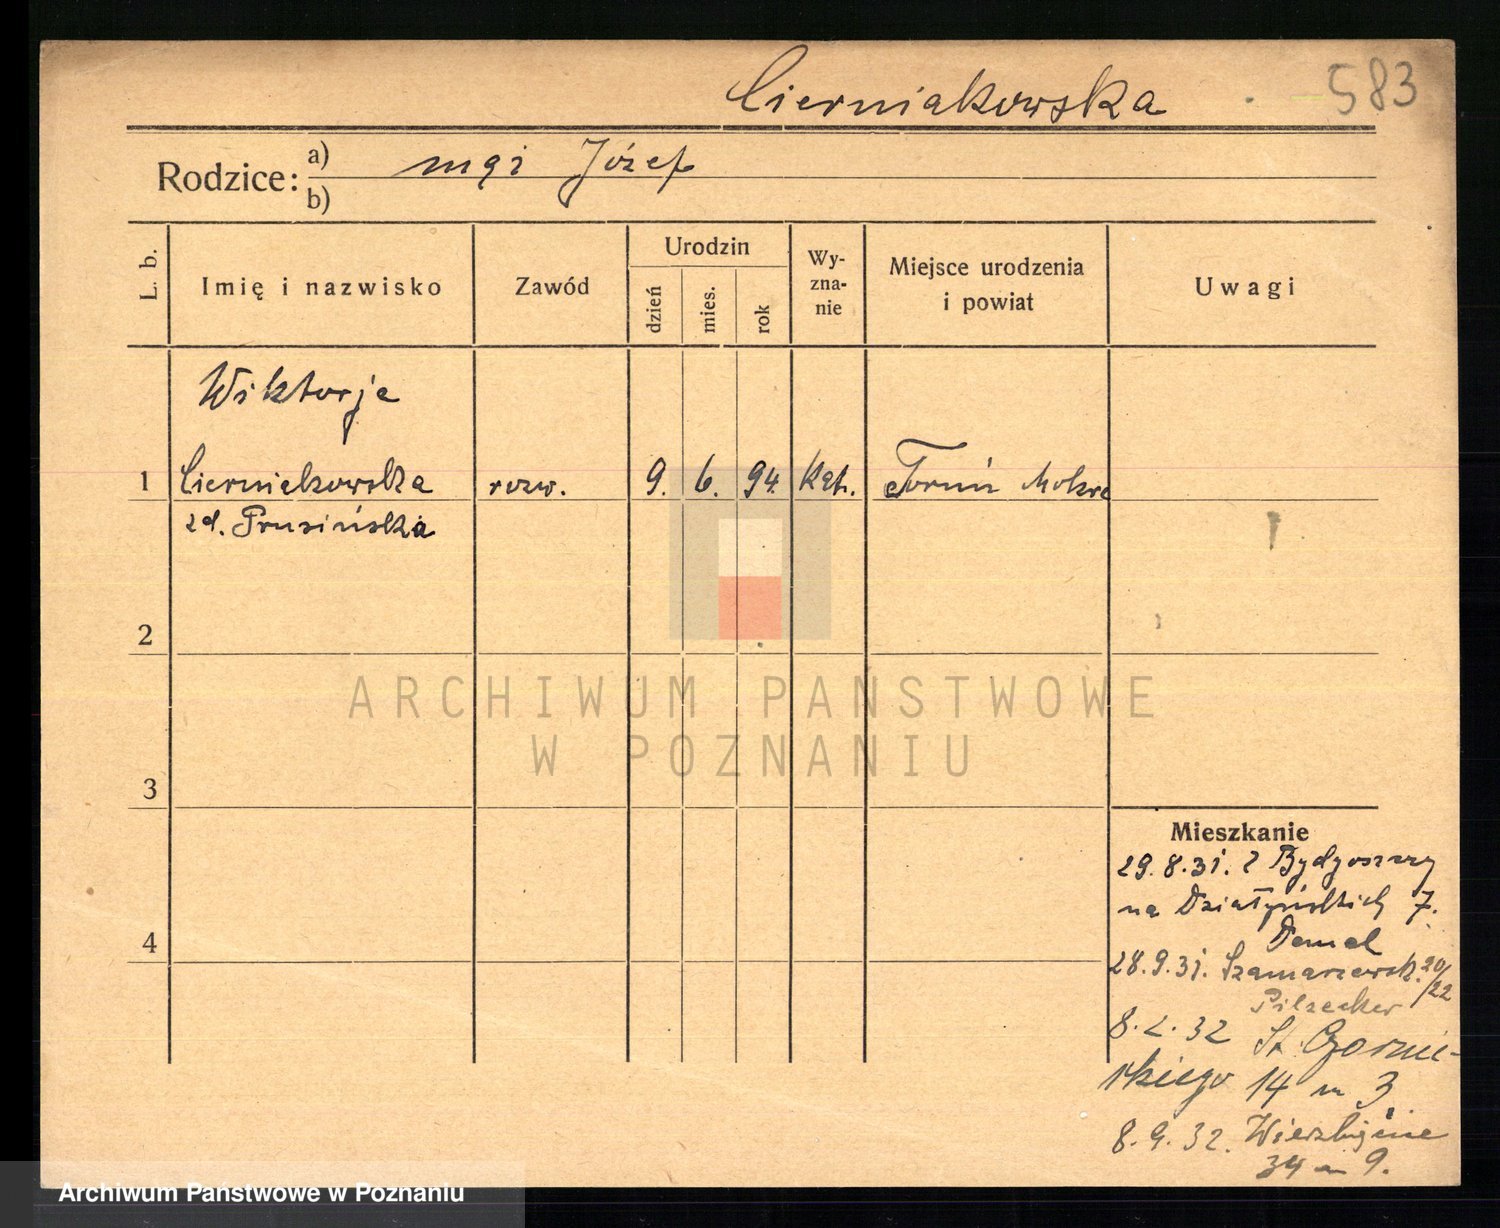 Cierniakowska 583
Rodzice: a) mąż Józef
b)
L. b.
Imię i nazwisko
Zawód
Urodzin
dzień
mies.
rok
Wy-
zna-
nie
Miejsce urodzenia
i powiat
Uwagi
Wiktorja
1 Cierniakowska rozw. 9. 6. 94. Kat. Toruń Mokre
zd. Prusińska
2
ARCHIWUM PAŃSTWOWE
W POZNANIU
3
Mieszkanie
29.8.31. z Bydgoszczy
na Działyńskich 7.
4
Demel
28.9.31. Szamarzewsk. 20/22
Pilzecker
8.2.32 St.
skiego 14 m 3
8.9.32. Wierzbięcice
34 m 9.
Archiwum Państwowe w Poznaniu